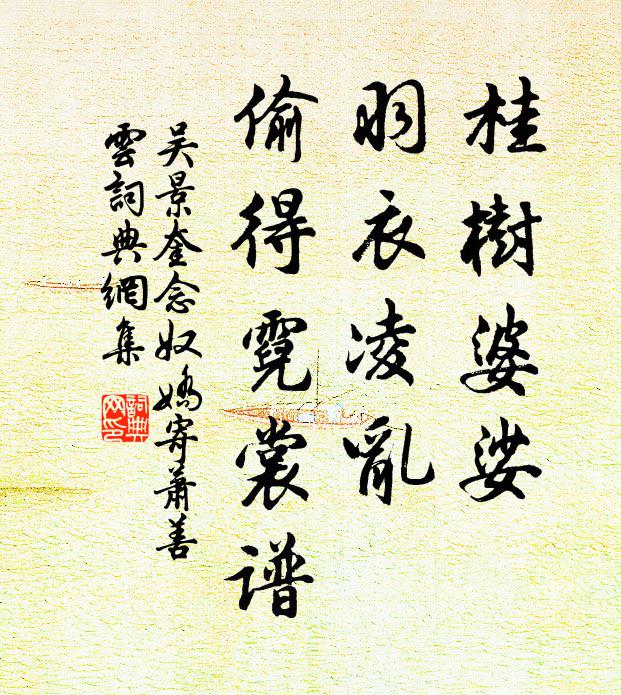 桂樹婆娑
羽衣凌亂
偷得霓裳譜
吴景奎念奴嬌寄蕭善
雲詞典網集
詞典
网印